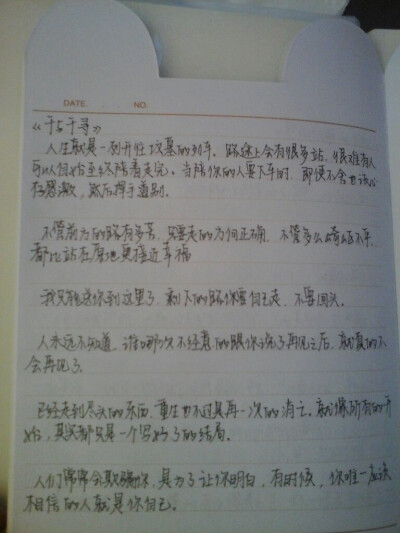 DATE. . . NO.
《千与千寻》
人生就是一列开往坟墓的列车,路途上会有很多站,很难有人
可以自始至终陪着走完。当陪你的人要下车时,即使不舍也该心
存感激,然后挥手道别。
不管前方的路有多苦,只要走的方向正确,不管多么崎岖不平,
都比站在原地更接近幸福
我只能送你到这里了,剩下的路你要自己走,不要回头。
人永远不知道,谁哪次不经意的跟你说了再见之后,就真的不
会再见了。
已经走到尽头的东西,重生也不过是再一次的消亡。就像所有的开
始,其实都只是一个写好了的结局。
人们常常会欺骗你,是为了让你明白,有时候,你唯一应该
相信的人就是你自己。